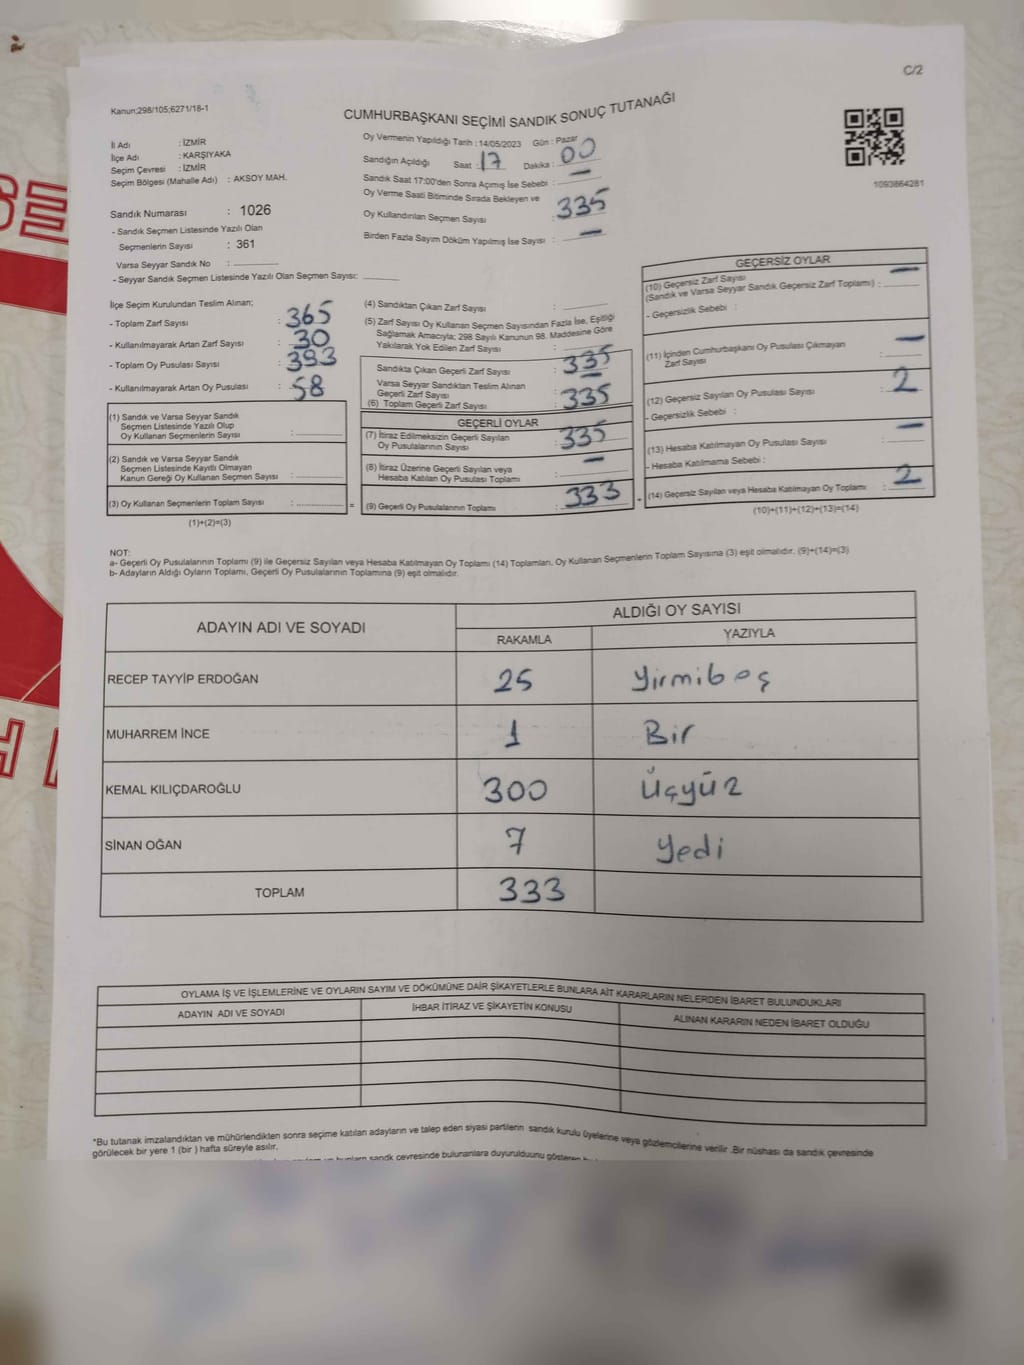 C/2
Kanun;298/105;6271/18-1
CUMHURBAŞKANI SEÇİMİ SANDIK SONUÇ TUTANAĞI
İl Adı : İZMİR
İlçe Adı : KARŞIYAKA
Seçim Çevresi : İZMİR
Seçim Bölgesi (Mahalle Adı) : AKSOY MAH.
Sandık Numarası : 1026
- Sandık Seçmen Listesinde Yazılı Olan
Seçmenlerin Sayısı : 361
Varsa Seyyar Sandık No :
- Seyyar Sandık Seçmen Listesinde Yazılı Olan Seçmen Sayısı:
Oy Vermenin Yapıldığı Tarih : 14/05/2023 Gün : Pazar
Sandığın Açıldığı Saat : 17 Dakika : 00
Sandık Saat 17:00'den Sonra Açımış İse Sebebi : —
Oy Verme Saati Bitiminde Sırada Bekleyen ve
Oy Kullandırılan Seçmen Sayısı : 335
Birden Fazla Sayım Döküm Yapılmış İse Sayısı : —
1093864281
İlçe Seçim Kurulundan Teslim Alınan;
- Toplam Zarf Sayısı : 365
- Kullanılmayarak Artan Zarf Sayısı : 30
- Toplam Oy Pusulası Sayısı : 393
- Kullanılmayarak Artan Oy Pusulası : 58
(1) Sandık ve Varsa Seyyar Sandık
Seçmen Listesinde Yazılı Olup
Oy Kullanan Seçmenlerin Sayısı :
(2) Sandık ve Varsa Seyyar Sandık
Seçmen Listesinde Kayıtlı Olmayan
Kanun Gereği Oy Kullanan Seçmen Sayısı :
(3) Oy Kullanan Seçmenlerin Toplam Sayısı : =
(1)+(2)=(3)
(4) Sandıktan Çıkan Zarf Sayısı :
(5) Zarf Sayısı Oy Kullanan Seçmen Sayısından Fazla İse, Eşitliği
Sağlamak Amacıyla; 298 Sayılı Kanunun 98. Maddesine Göre
Yakılarak Yok Edilen Zarf Sayısı :
Sandıkta Çıkan Geçerli Zarf Sayısı : 335
Varsa Seyyar Sandıktan Teslim Alınan
Geçerli Zarf Sayısı : —
(6) Toplam Geçerli Zarf Sayısı : 335
GEÇERLİ OYLAR
(7) İtiraz Edilmeksizin Geçerli Sayılan
Oy Pusulalarının Sayısı : 335
(8) İtiraz Üzerine Geçerli Sayılan veya
Hesaba Katılan Oy Pusulası Toplamı : —
(9) Geçerli Oy Pusulalarının Toplamı : 333 +
GEÇERSİZ OYLAR
(10) Geçersiz Zarf Sayısı
(Sandık ve Varsa Seyyar Sandık Geçersiz Zarf Toplamı) : —
- Geçersizlik Sebebi :
(11) İçinden Cumhurbaşkanı Oy Pusulası Çıkmayan
Zarf Sayısı : —
(12) Geçersiz Sayılan Oy Pusulası Sayısı : 2
- Geçersizlik Sebebi :
(13) Hesaba Katılmayan Oy Pusulası Sayısı : —
- Hesaba Katılmama Sebebi :
(14) Geçersiz Sayılan veya Hesaba Katılmayan Oy Toplamı : 2
(10)+(11)+(12)+(13)=(14)
NOT:
a- Geçerli Oy Pusulalarının Toplamı (9) ile Geçersiz Sayılan veya Hesaba Katılmayan Oy Toplamı (14) Toplamları, Oy Kullanan Seçmenlerin Toplam Sayısına (3) eşit olmalıdır. (9)+(14)=(3)
b- Adayların Aldığı Oyların Toplamı, Geçerli Oy Pusulalarının Toplamına (9) eşit olmalıdır.
ADAYIN ADI VE SOYADI ALDIĞI OY SAYISI
RAKAMLA YAZIYLA
RECEP TAYYİP ERDOĞAN 25 Yirmibeş
MUHARREM İNCE 1 Bir
KEMAL KILIÇDAROĞLU 300 Üçyüz
SİNAN OĞAN 7 Yedi
TOPLAM 333
OYLAMA İŞ VE İŞLEMLERİNE VE OYLARIN SAYIM VE DÖKÜMÜNE DAİR ŞİKAYETLERLE BUNLARA AİT KARARLARIN NELERDEN İBARET BULUNDUKLARI
ADAYIN ADI VE SOYADI İHBAR İTİRAZ VE ŞİKAYETİN KONUSU ALINAN KARARIN NEDEN İBARET OLDUĞU
*Bu tutanak imzalandıktan ve mühürlendikten sonra seçime katılan adayların ve talep eden siyasi partilerin sandık kurulu üyelerine veya gözlemcilerine verilir .Bir nüshası da sandık çevresinde
görülecek bir yere 1 (bir ) hafta süreyle asılır.
sandık çevresinde bulunanlara duyurulduunu gösteren